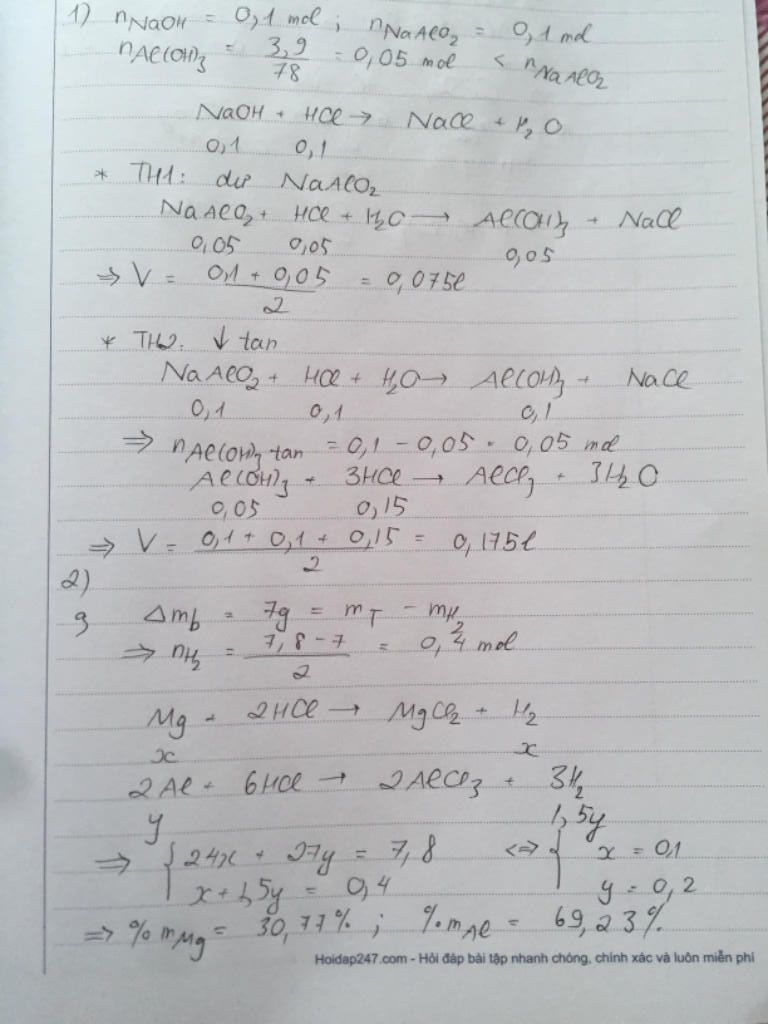 1) nNaOH = 0,1 mol ; nNaAlO2 = 0,1 mol
nAl(OH)3 = 3,9/78 = 0,05 mol < nNaAlO2
NaOH + HCl → NaCl + H2O
0,1 0,1
* TH1: dư NaAlO2
NaAlO2 + HCl + H2O → Al(OH)3 + NaCl
0,05 0,05 0,05
⇒ V = (0,1 + 0,05)/2 = 0,075l
* TH2: ↓ tan
NaAlO2 + HCl + H2O → Al(OH)3 + NaCl
0,1 0,1 0,1
⇒ nAl(OH)3 tan = 0,1 - 0,05 = 0,05 mol
Al(OH)3 + 3HCl → AlCl3 + 3H2O
0,05 0,15
⇒ V = (0,1 + 0,1 + 0,15)/2 = 0,175l
2)
Δmb = 7g = mT - mH2
⇒ nH2 = (7,8 - 7)/2 = 0,4 mol
Mg + 2HCl → MgCl2 + H2
x x
2Al + 6HCl → 2AlCl3 + 3H2
y 1,5y
⇒ { 24x + 27y = 7,8 <=> { x = 0,1
x + 1,5y = 0,4 y = 0,2
⇒ % mMg = 30,77% ; % mAl = 69,23%
Hoidap247.com - Hỏi đáp bài tập nhanh chóng, chính xác và luôn miễn phí